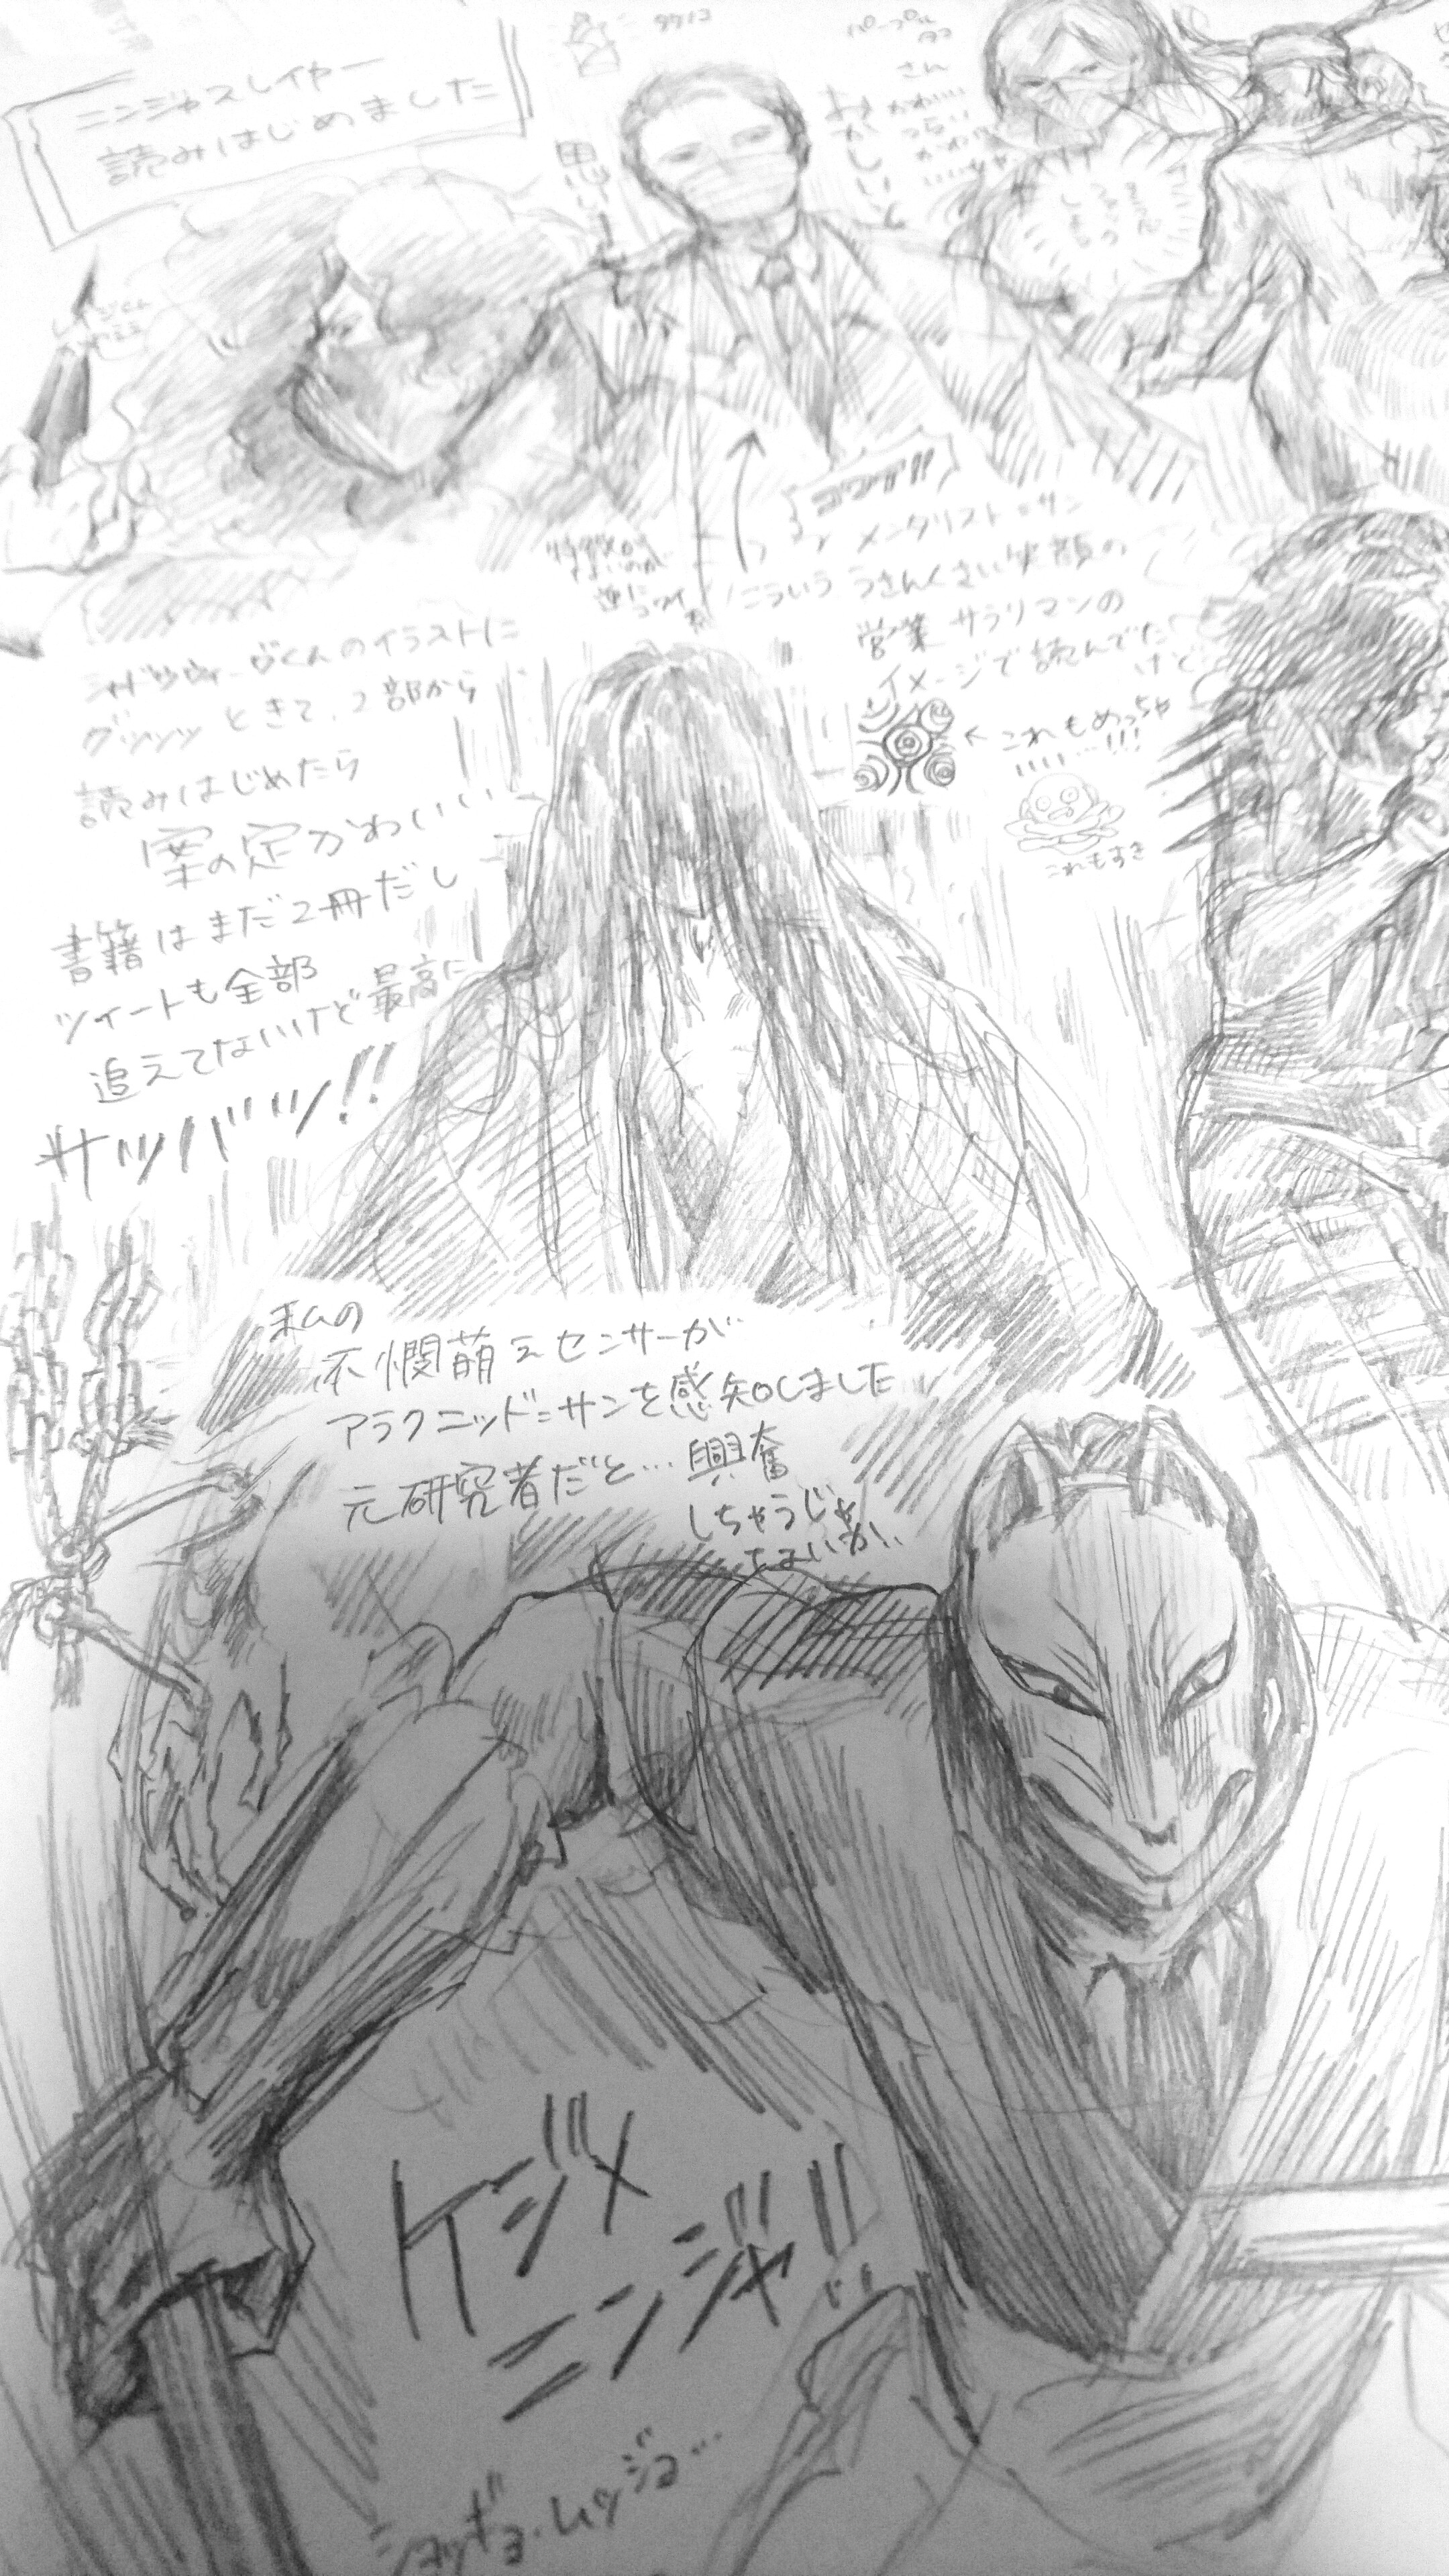 ニンジャスレイヤー
読みはじめました
パープル
タコ
さん
かわいい
つらい
かわいい
おかしいと
思い
メンタリスト=サン
こういう うさんくさい笑顔の
営業サラリマンの
イメージで読んでた
けど
←これもめっちゃ
いい…!!!
これもすき
特徴の
ないのが
逆に
コワイ
シャドウウィーヴくんのイラストに
グッッッ ときて、2部から
読みはじめたら
案の定かわいい
書籍はまだ2冊だし
ツイートも全部
追えてないけど最高に
サツバツ!!
私の
不憫萌えセンサーが
アラクニッド=サンを感知しました
元研究者だと…興奮
しちゃうじゃ
ないか、
ケジメ
ニンジャ!!
ショッギョ・ムッジョ…